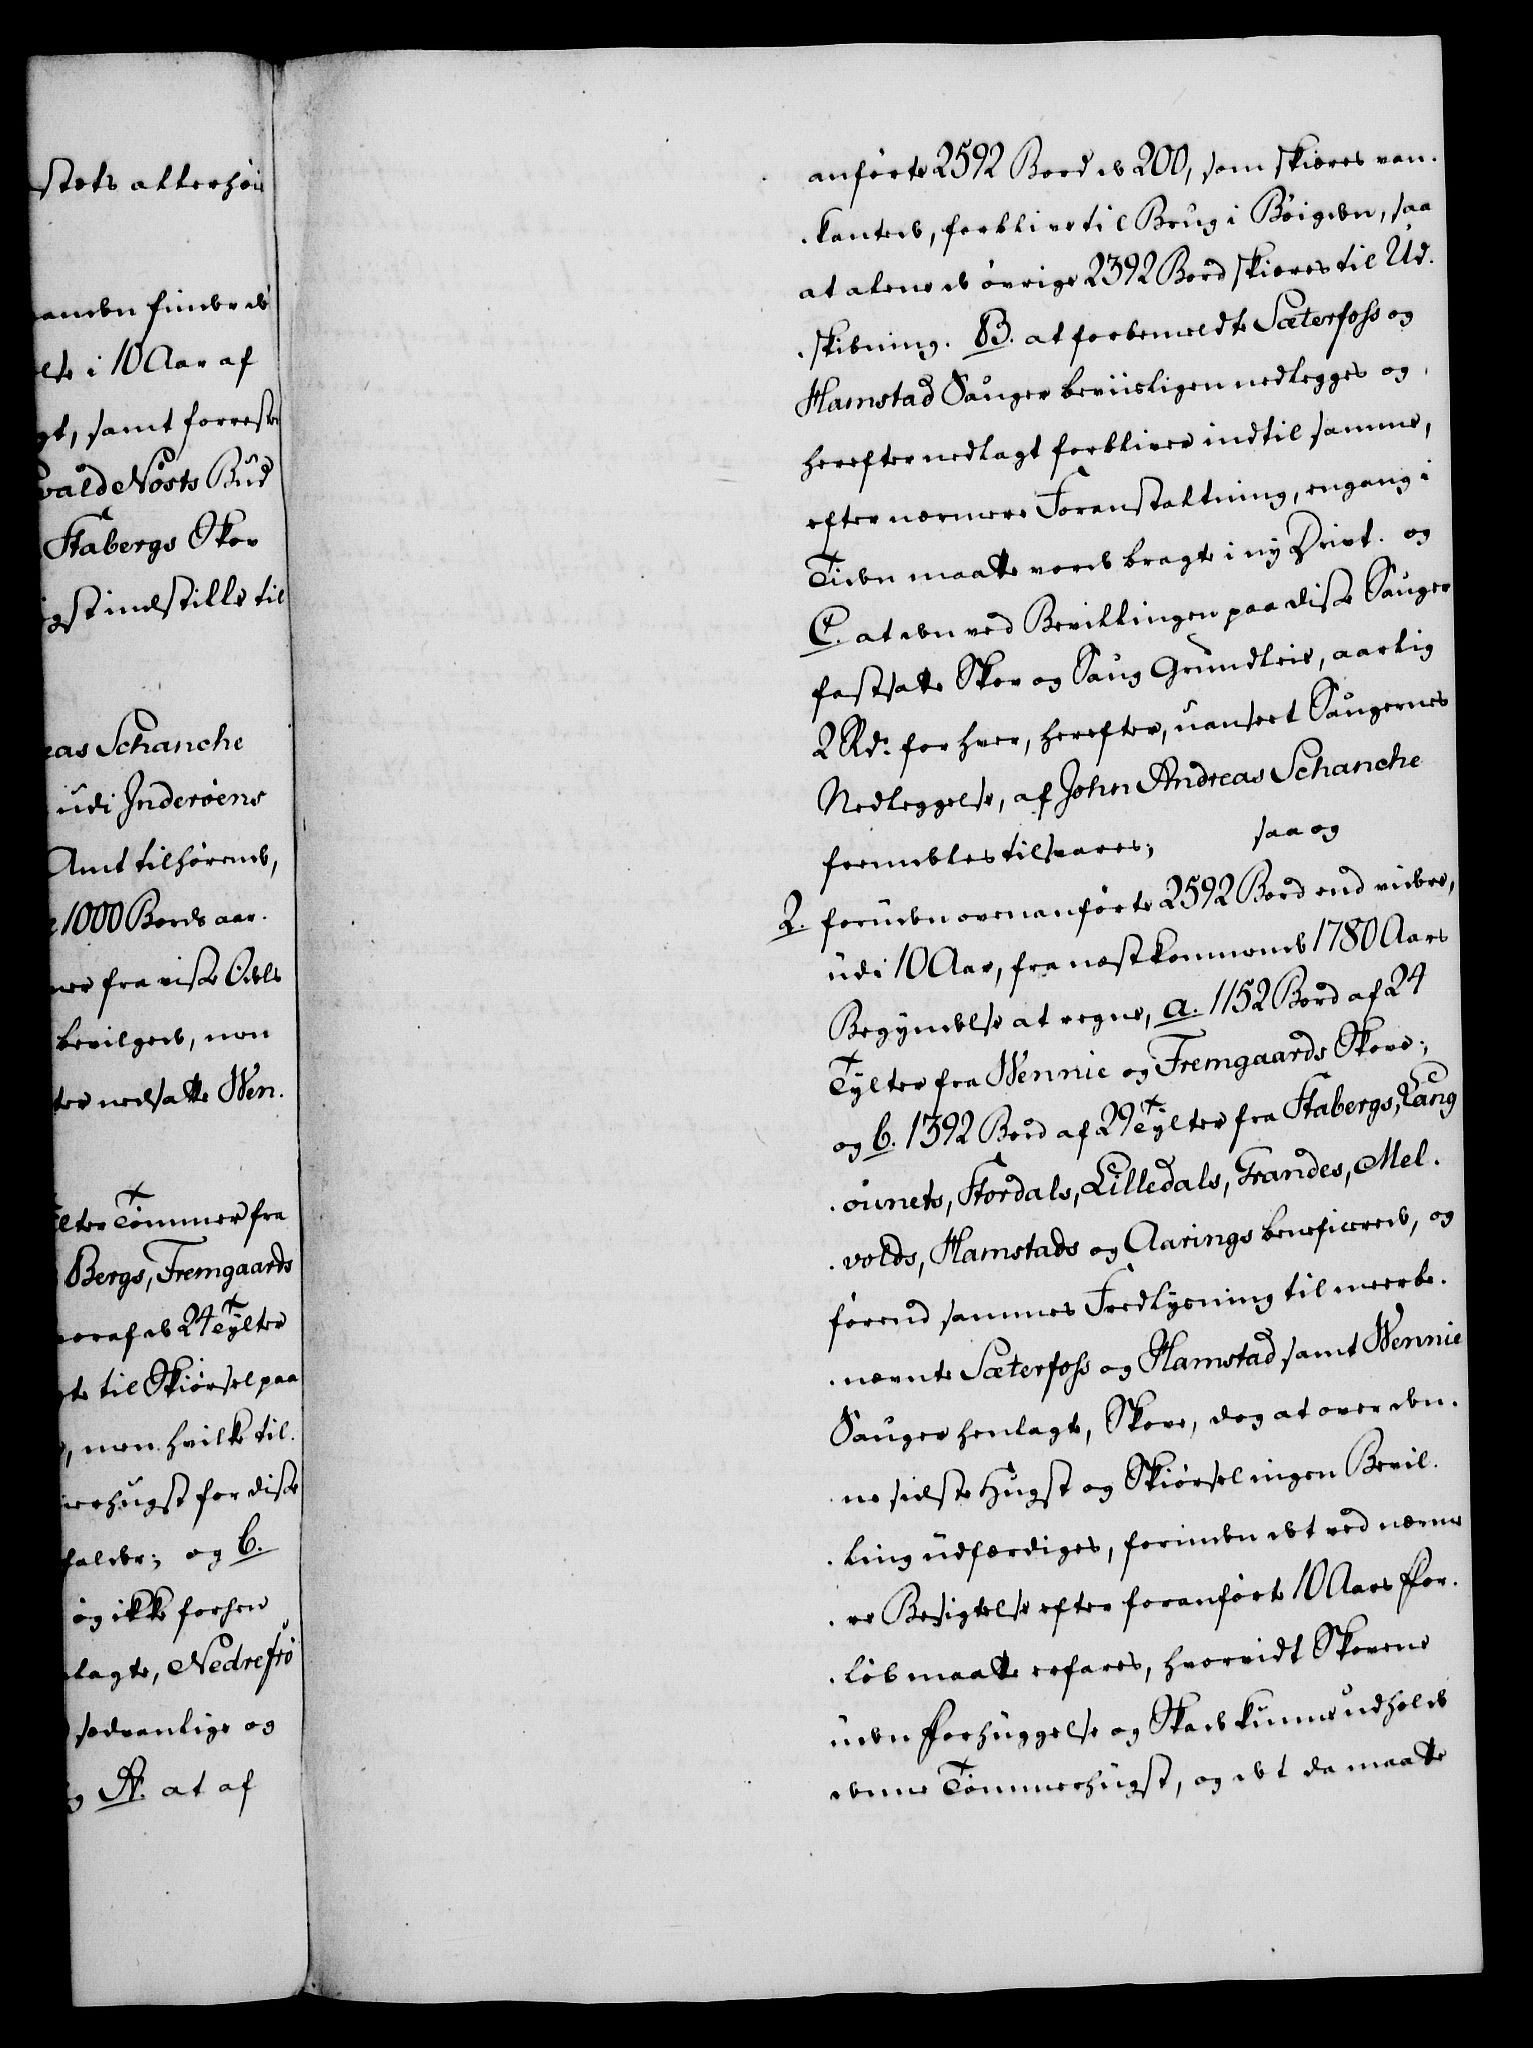 stets allerhøi
anden finder de
elte i 10 Aar af
gt, samt forreste
vald Nösts Bud
Stabergs Skov
igst indstille til
eas Schanche
udi Inderöens
Amt tilhørende,
e 1000 Bords aar-
ner fra visse Odels
bevilgede, men
ter nedsatte Wen-
ylter Tømmer fra
Bergs, Fremgaards
hvoraf de 24 Tylter
te til Skiørsel paa
, men hvilke til-
merhugst for disse
falder; og b.
og ikke forhen
lagte, Nedrefiö
sædvanlige og
og A. at af
anførte 2592 Bord de 200, som skiæres van-
-kantede, forblive til Brug i Böigden, saa
at alene de øvrige 2392 Bord skiæres til Ud-
-skibning. B. at forbemeldte Sæterfoss og
Hamstad Sauger beviisligen nedlegges og
herefter nedlagt forbliver indtil samme,
efter nærmere Foranstaltning, engang i
Tiden maatte vorde bragte i ny Drivt. og
C. at den ved Bevillingen paa disse Sauger
fastsatte Skov og Saug Grundleie, aarlig
2 Rd: for hver, herefter, uanseet Saugernes
Nedleggelse, af John Andreas Schanche
fremdeles tilsvares; saa og
2. foruden ovenanførte 2592 Bord end videre,
udi 10 Aar, fra næstkommende 1780 Aars
Begyndelse at regne, a. 1152 Bord af 24
Tylter fra Wennie og Fremgaards Skove;
og b. 1392 Bord af 29 Tylter fra Stabergs, Lang
-öunets, Stordals, Lilledals, Grandes, Mel-
-volds, Hamstads og Aarings beneficerede, og
førend sammes Fredlysning til meerbe-
-nævnte Sæterfoss og Hamstad samt Wennie
Sauger henlagte, Skove, dog at over den-
ne sidste Hugst og Skiørsel ingen Bevil-
-ling udfærdiges, forinden det ved nærme
-re Besigtelse efter foranførte 10 Aars For-
-løb maatte erfares, hvorvidt Skovene
uden Forhuggelse og Skade kunne udholde
denne Tømmerhugst, og det da maatte